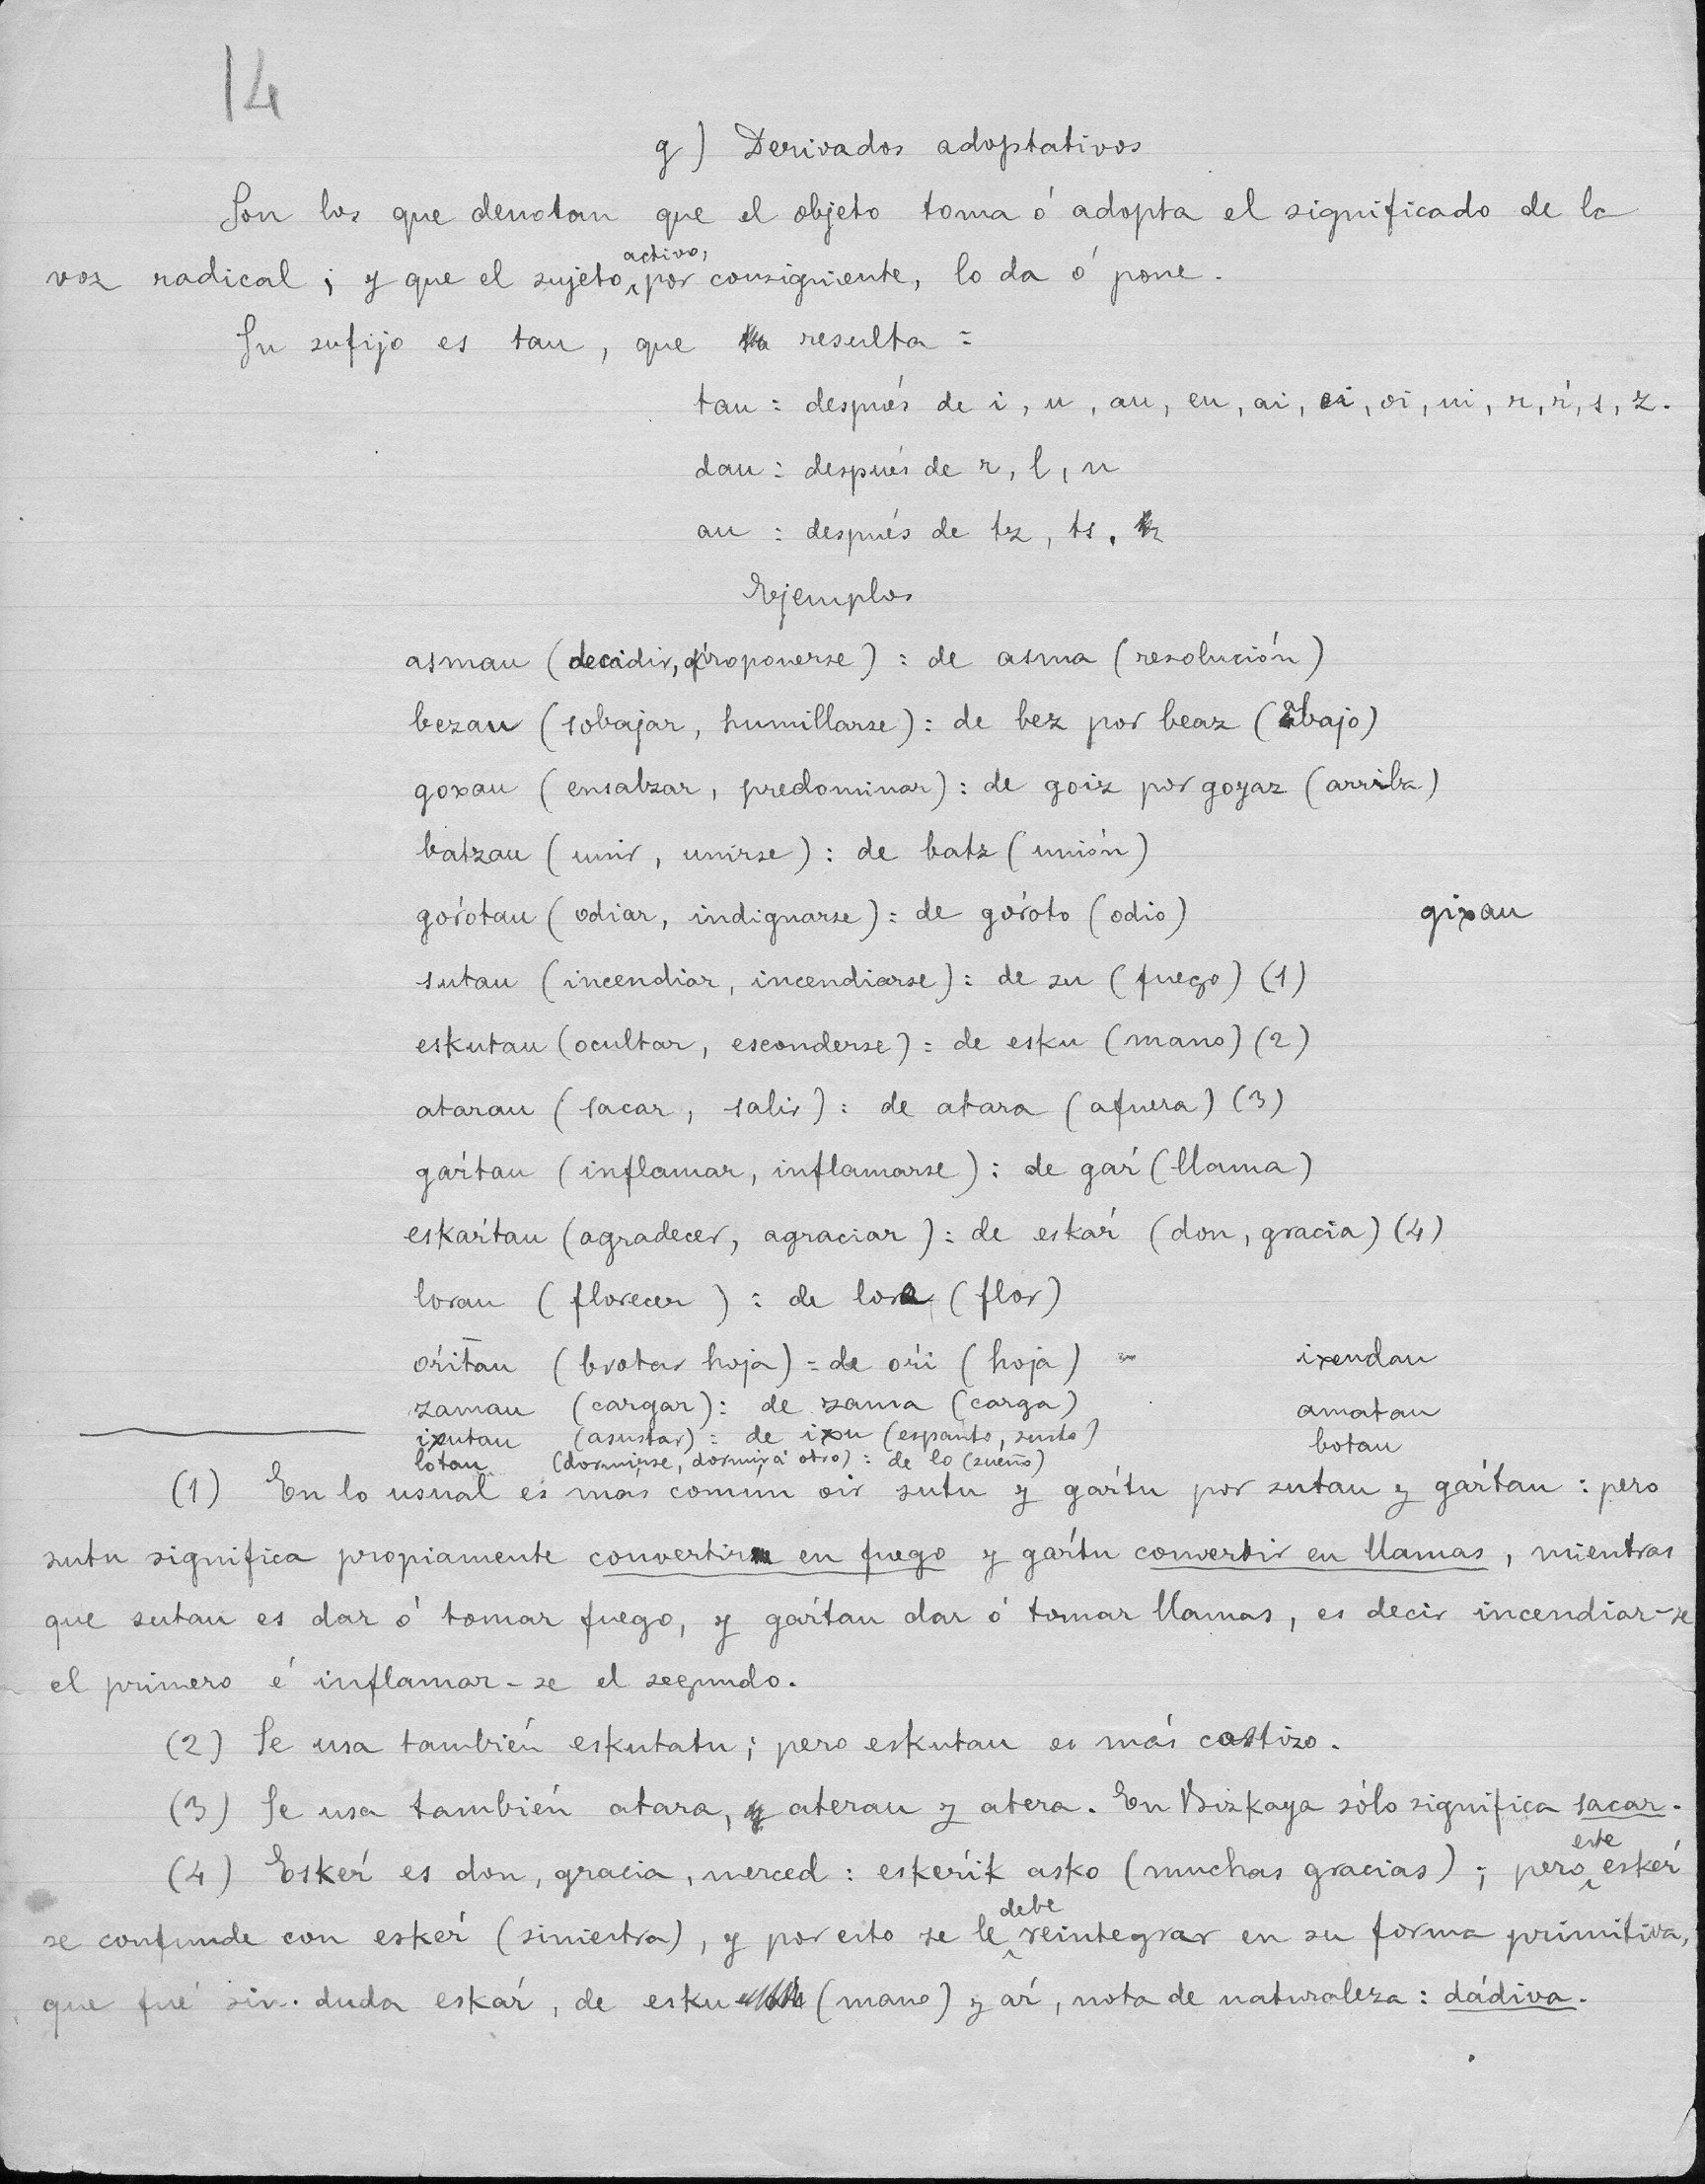 14
g) Derivados adoptativos
Son los que denotan que el objeto toma ó adopta el significado de la
activo,
voz radical; y que el sujeto, por consiguiente, lo da ó pone.
Su sufijo es tau, que resulta:
tau: después de i, u, au, eu, ai, ei, oi, ui, r, ŕ, s, z.
dau: después de r, l, n
au: después de tz, ts.
Ejemplos
asmau (decidir, proponerse): de asma (resolución)
bezau (sobajar, humillarse): de bez por beaz (abajo)
goxau (ensalzar, predominar): de goiz por goyaz (arriba)
batzau (unir, unirse): de batz (unión)
goŕotau (odiar, indignarse): de goŕoto (odio) gixau
sutau (incendiar, incendiarse): de su (fuego) (1)
eskutau (ocultar, esconderse): de esku (mano) (2)
atarau (sacar, salir): de atara (afuera) (3)
gaŕtau (inflamar, inflamarse): de gaŕ (llama)
eskaŕtau (agradecer, agraciar): de eskaŕ (don, gracia) (4)
lorau (florecer): de lora (flor)
oŕitau (brotar hoja): de oŕi (hoja) ixendau
zamau (cargar): de zama (carga) amatau
ixutau (asustar): de ixu (espanto, susto) botau
lotau (dormirse, dormir á otro): de lo (sueño)
(1) En lo usual es mas comun oir sutu y gaŕtu por sutau y gaŕtau: pero
sutu significa propiamente convertir en fuego y gaŕtu convertir en llamas, mientras
que sutau es dar ó tomar fuego, y gaŕtau dar ó tomar llamas, es decir incendiar-se
el primero é inflamar-se el segundo.
(2) Se usa también eskutatu; pero eskutau es más castizo.
(3) Se usa también atara, aterau y atera. En Bizkaya sólo significa sacar.
este
(4) Eskeŕ es don, gracia, merced: eskeŕik asko (muchas gracias); pero eskeŕ
debe
se confunde con eskeŕ (siniestra), y por esto se le reintegrar en su forma primitiva,
que fué sin duda eskaŕ, de esku (mano) y aŕ, nota de naturaleza: dádiva.